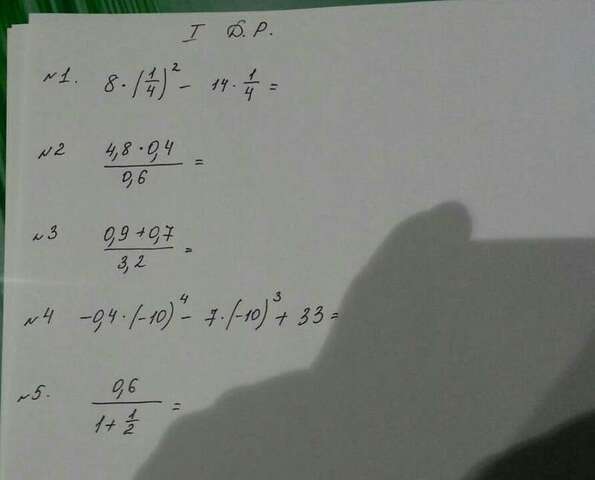 I Д.Р.
№1. 8·(1/4)² - 14·1/4 =
№2 4,8·0,4/0,6 =
№3 0,9+0,7/3,2 =
№4 -0,4·(-10)⁴ - 7·(-10)³ + 33 =
№5. 0,6/1+1/2 =